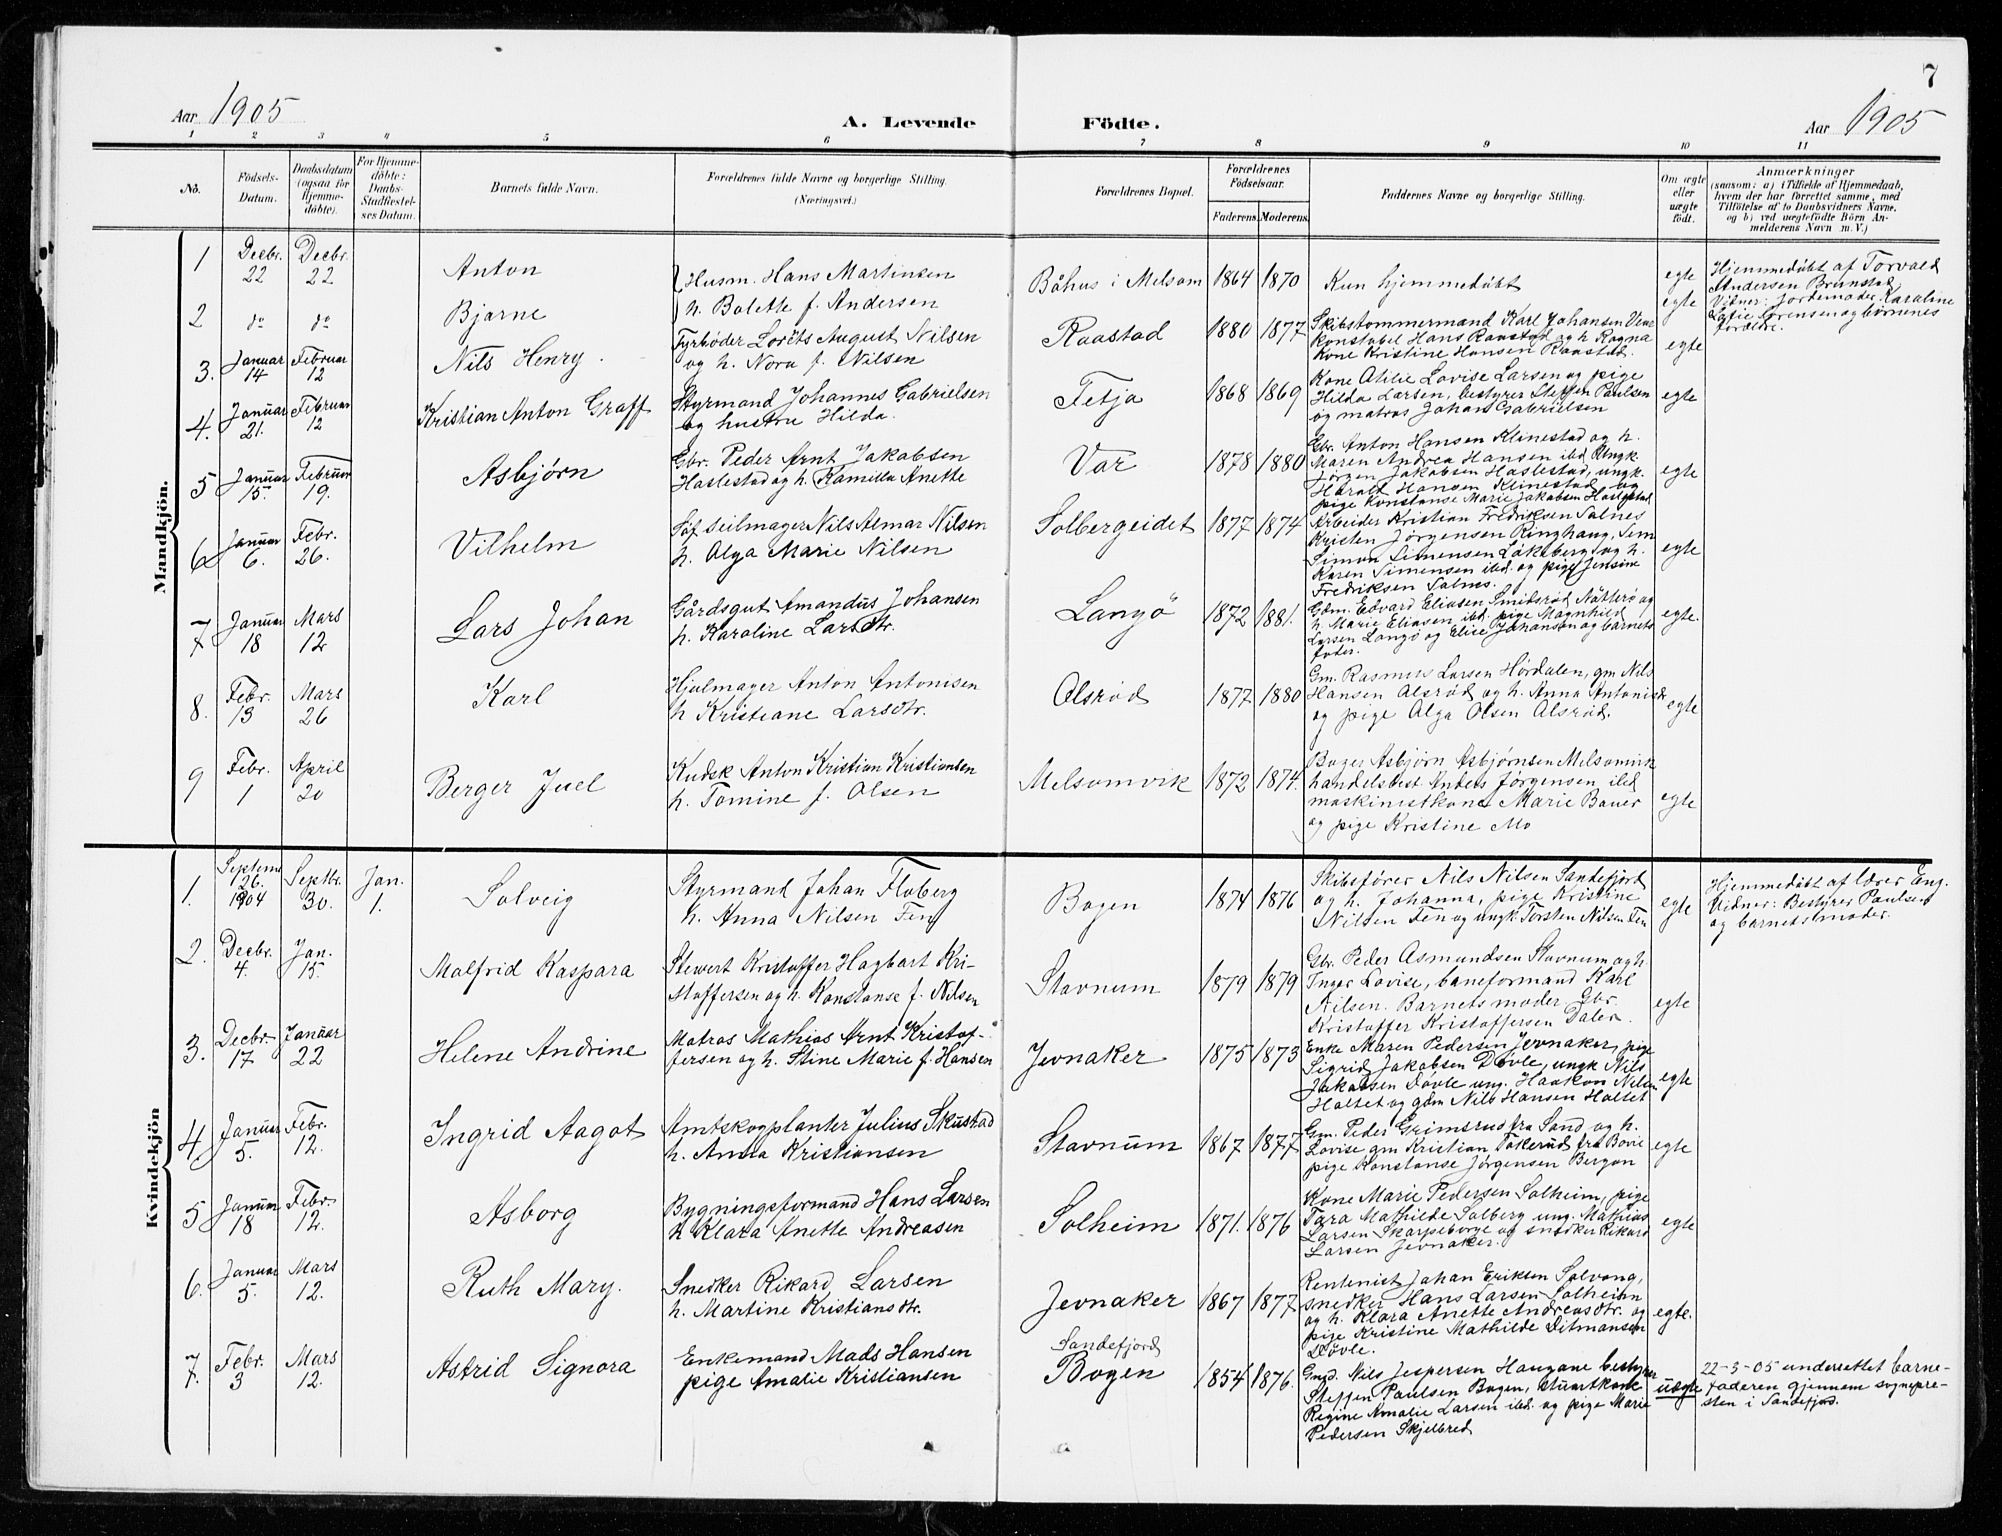 7
Aar 1905
A. Levende Födte.
Aar 1905
1 2 3 4 5 6 7 8 9 10 11
No.
Födsels-Datum.
Daabsdatum (ogsaa for Hjemme-döbte).
For Hjemme-döbte: Daabs-Stadfæstel-ses Datum.
Barnets fulde Navn.
Forældrenes fulde Navne og borgerlige Stilling.
(Næringsvei.)
Forældrenes Bopæl.
Forældrenes Födselsaar.
Faderens. Moderens.
Faddernes Navne og borgerlige Stilling.
Om ægte eller uægte født.
Anmærkninger
(saasom: a) i Tilfælde af Hjemmedaab,
hvem der har forrettet samme, med
Tilföielse af to Daabsvidners Navne,
og b) ved uægtefödte Börn An-
melderens Navn m. V.)
Mandkjön.
1 Decbr. 22 Decbr. 22 Anton
Husm. Hans Martinsen
h. Bolette f. Andersen
Båhus i Melsom 1864 1870 Kun hjemmedøbt egte
Hjemmedøbt af Torvald
Andersen Brunstad
Vidner: Jordemoder Karoline
Sørensen og barnets
forældre.
2 do do Bjarne
egte
3. Januar 14 Februar 12 Nils Henry.
Fyrbøder August Nilsen
og h. Nora f. Nilsen
Raastad 1880 1877
Skibstømmermand Karl Johansen
konstabel Hans Raastad og h. Ragna
Kone Kristine Hansen Raastad.
egte
4. Januar 21. Februar 12 Kristian Anton Graff
Styrmand Johannes Gabrielsen
og hustru Hilda
Fetja 1868 1869
Kone Otilie Lovise Larsen og pige
Hilda Larsen, bestyrer Steffen Paulsen
og matros Johan Gabrielsen
egte
5 Januar 15 Februar 19. Asbjørn
Gbr. Peder Arnt Jakobsen
Haslestad og h. Kamilla Anette
Var 1878 1880
Gbr. Anton Hansen Klinestad og h.
Maren Andrea Hansen ibd Ungk
Jørgen Jakobsen Haslestad, ungk.
Harald Hansen Klinestad og
pige Konstanse Marie Jakobsen Haslestad
egte
6 Januar 6. Febr. 26. Vilhelm
Seilmager Nils Almar Nilsen
h. Olga Marie Nilsen
Solbergeidet 1877 1874
Arbeider Kristian Fredriksen Solnes
Kristen Jørgensen Ringhaug, Sem
Simon Simensen Løkeberg og h.
Karen Simensen ibd. og pige Jensine
Fredriksen Solnes.
egte
7 Januar 18 Mars 12 Lars Johan
Gårdsgut Amandus Johansen
h. Karoline Larsdtr.
Langø 1872 1881.
Gdm. Edvard Eliasen Smidsrød Nøtterø og
h. Marie Eliasen ibd. pige Magnhild
Larsen Langø og Elise Johansen og barnets
fader.
egte.
8. Febr. 13 Mars 26 Karl
Hjulmager Anton Antonisen
h Kristiane Larsdtr.
Olsrød 1877 1880
Gm. Rasmus Larsen Hørdalen, gm Nils
Hansen Olsrød og h. Anna Antonisdr
og pige Olga Olsen Olsrød.
egte
9 Febr. 1 April 20 Berger Juel
Kudsk Anton Kristian Kristiansen
h. Tomine f. Olsen
Melsomvik 1872 1874.
Bager Asbjørn Asbjørnsen Melsomvik
handelsbest Anders Jørgensen, ibd
maskinistkone Marie Bauer
og pige Kristine Mo
egte
Kvindekjön
1. Septem 26. 1904 Septbr. 30. Jan. 1. Solveig
Styrmand Johan Floberg
h. Anna Nilsen Fen
Bogen 1874 1876
Skibsfører Nils Nilsen Sandefjord
og h. Johanna, pige Kristine
Nilsen Fen og ungk. Torsten Nilsen Fen
egte
Hjemmedøbt af lærer Eng.
Vidner: Bestyrer Paulsen
og barnets moder.
2. Decbr. 4. Jan. 15. Malfrid Kaspara
Stewert Kristoffer Hagbart Kri-
stoffersen og h. Konstanse f. Nilsen
Stavnum 1879 1879
Gbr. Peder Asmundsen Stavnum og h.
Inger Lovise, baneformand Karl
Nilsen. Barnets moder, Gbr.
Kristoffer Kristoffersen Dalen.
egte
3. Decbr. 17 Januar 22 Helene Andrine
Matros Mathias Arnt Kristof-
fersen og h. Stine Marie f. Hansen
Jevnaker 1875 1873
Enke Maren Pedersen Jevnaker, pige
Sigrid Jakobsen Døvle, ungk Nils
Jakobsen Døvle ung. Haakon Nilsen
Holtet og gdm Nils Hansen Holtet
egte
4. Januar 5. Febr. 12. Ingrid Aagot
Amtskogplanter Julius Skustad
h. Anna Kristiansen
Stavnum 1867 1877
Gm. Peder Grimsrud fra Sand og h.
Lovise gm Kristian Tokerud fra Bovie
pige Konstanse Jørgensen Bergan
egte
5 Januar 18 Febr. 12. Asborg
Bygningsformand Hans Larsen
h Klara Anette Andreasen
Solheim 1871. 1876
Kone Marie Pedersen Solheim, pige
Tora Mathilde Solberg ung. Mathias
Larsen Skarpseborge og snedker Rikard
Larsen Jevnaker.
egte
6. Januar 5. Mars 12. Ruth Mary.
Snedker Rikard Larsen
h. Martine Kristiansdtr.
Jevnaker 1867 1877
Rentenist Johan Eriksen Solvang,
snedker Hans Larsen Solheim
og h. Klara Anette Andreasdtr. og
pige Kristine Mathilde Ditmansen
Døvle.
egte.
7. Febr. 3 Mars 12. Astrid Signora
Enkemand Mads Hansen
pige Amalie Kristiansen
Sandefjord
Bogen 1854 1876.
Gmd. Nils Jespersen Haugane bestyrer
Steffen Paulsen Bogen, stuertkone
Regine Amalie Larsen ibd. og pige Marie
Pedersen Skjelbred
uægte
22-3-05 underrettet barne-
faderen gjennem sognepre-
sten i Sandefjord.